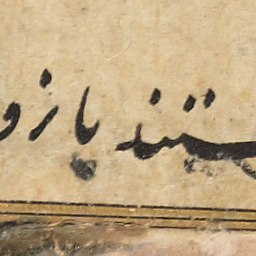 ستند یا زو